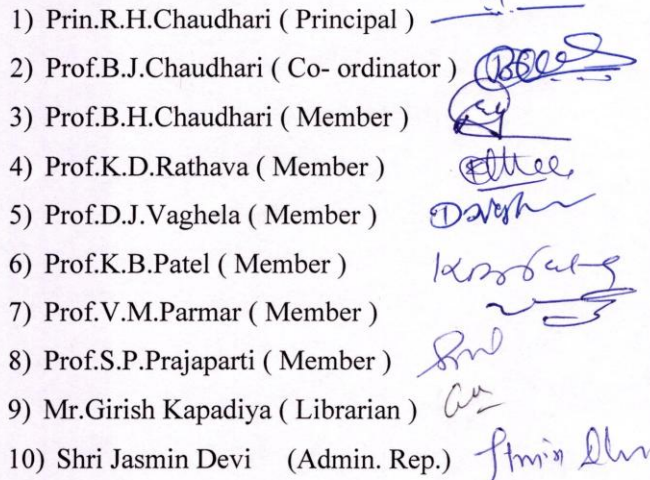 1) Prin.R.H.Chaudhari ( Principal )
2) Prof.B.J.Chaudhari ( Co- ordinator )
3) Prof.B.H.Chaudhari ( Member )
4) Prof.K.D.Rathava ( Member )
5) Prof.D.J.Vaghela ( Member )
6) Prof.K.B.Patel ( Member )
7) Prof.V.M.Parmar ( Member )
8) Prof.S.P.Prajaparti ( Member )
9) Mr.Girish Kapadiya ( Librarian )
10) Shri Jasmin Devi (Admin. Rep.)